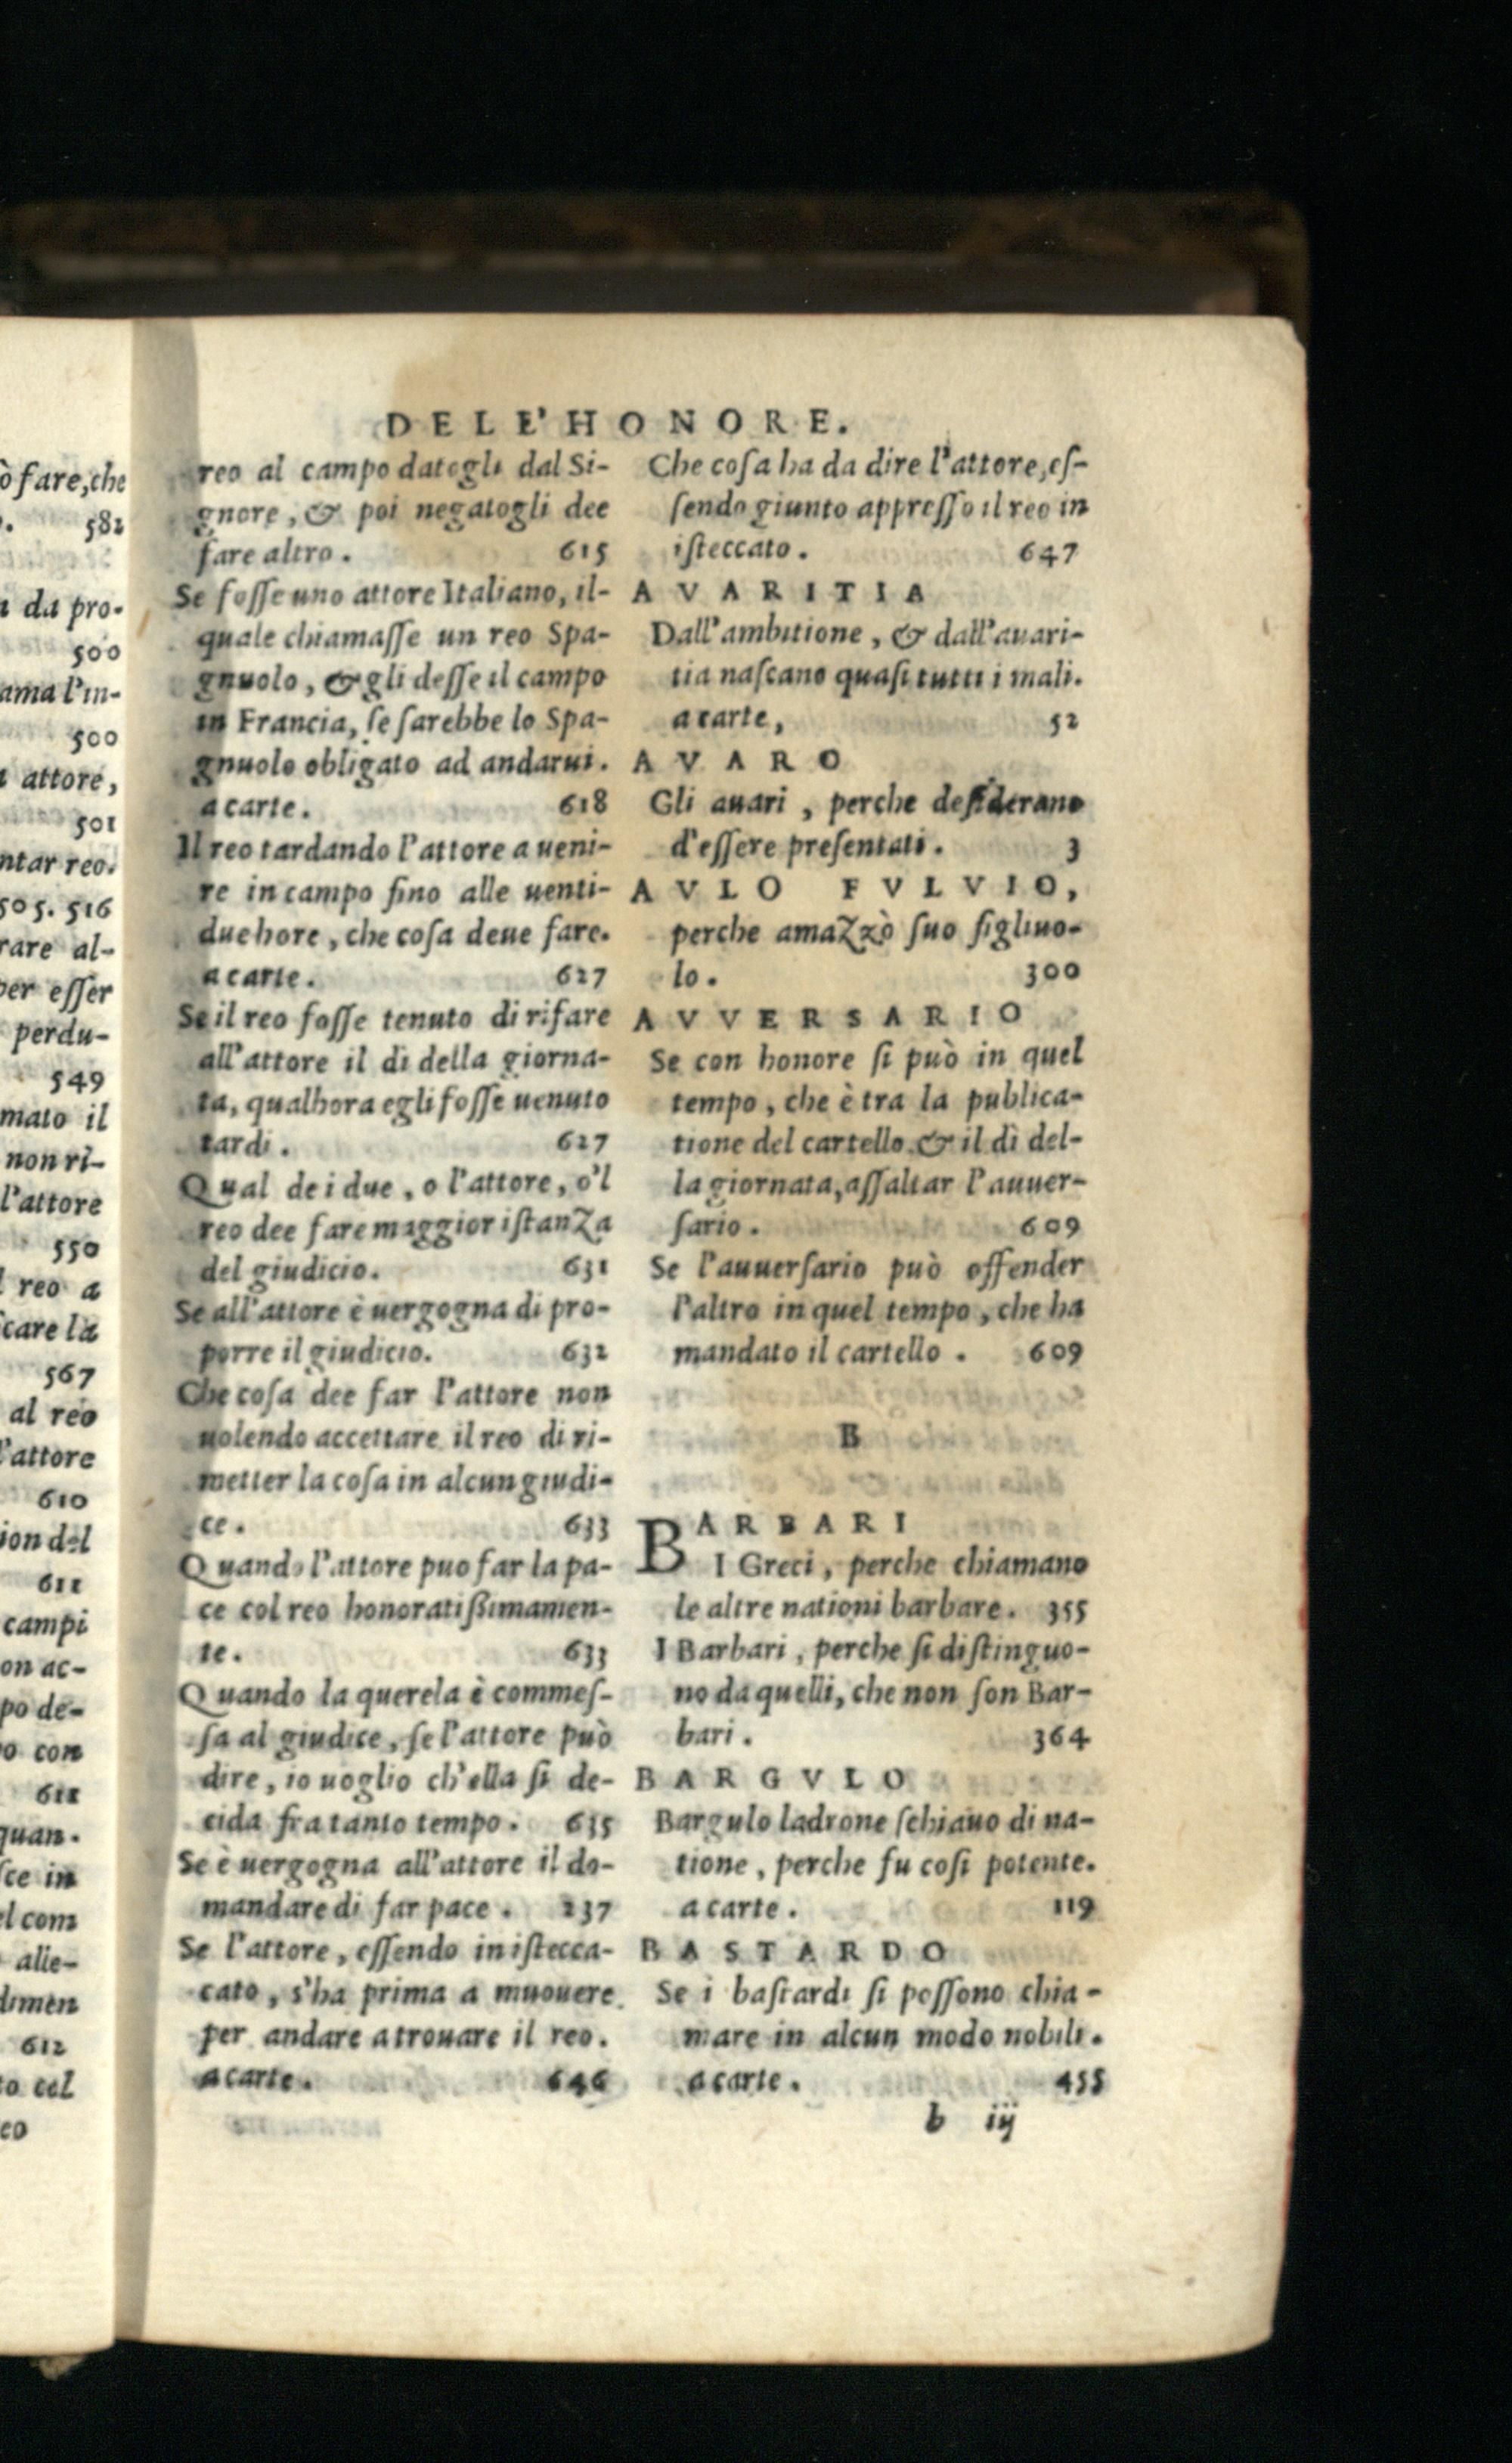 ò fare, che
582
da pro-
500
ama l'in-
500
attore,
501
ntar reo.
505. 516
rare al-
per esser
perdu-
549
mato il
non ri-
l'attore
550
reo a
care la
567
al reo
l'attore
610
ion del
611
campi
on ac-
po de-
o con
611
quan.
sce in
el com
alle-
dimen
612
to col
eo
DELL'HONORE.
reo al campo datogli dal Si-
gnore, & poi negatogli dee
fare altro. 615
Se fosse uno attore Italiano, il-
quale chiamasse un reo Spa-
gnuolo, & gli desse il campo
in Francia, se sarebbe lo Spa-
gnuolo obligato ad andarui.
a carte. 618
Il reo tardando l'attore a ueni-
re in campo fino alle uenti-
due hore, che cosa deue fare.
a carte. 627
Se il reo fosse tenuto di rifare
all'attore il dì della giorna-
ta, qualhora egli fosse uenuto
tardi. 627
Qual de i due, o l'attore, o'l
reo dee fare maggior istanza
del giudicio. 631
Se all'attore è uergogna di pro-
porre il giudicio. 632
Che cosa dee far l'attore non
uolendo accettare il reo di ri-
metter la cosa in alcun giudi-
ce. 633
Quando l'attore puo far la pa-
ce col reo honoratissimamen-
te. 633
Quando la querela è commes-
sa al giudice, se l'attore può
dire, io uoglio ch'ella si de-
cida fra tanto tempo. 635
Se è uergogna all'attore il do-
mandare di far pace. 237
Se l'attore, essendo in istecca-
cato, s'ha prima a muouere
per andare a trouare il reo.
a carte. 646
Che cosa ha da dire l'attore, es-
sendo giunto appresso il reo in
isteccato. 647
AVARITIA
Dall'ambitione, & dall'auari-
tia nascano quasi tutti i mali.
a carte, 52
AVARO
Gli auari, perche desiderano
d'essere presentati. 3
AVLO FVLVIO,
perche amazzò suo figliuo-
lo. 300
AVVERSARIO
Se con honore si può in quel
tempo, che è tra la publica-
tione del cartello & il dì del-
la giornata, assaltar l'auuer-
sario. 609
Se l'auuersario può offender
l'altro in quel tempo, che ha
mandato il cartello. 609
B
BARBARI
I Greci, perche chiamano
le altre nationi barbare. 355
I Barbari, perche si distinguo-
no da quelli, che non son Bar-
bari. 364
BARGVLO
Bargulo ladrone schiauo di na-
tione, perche fu cosi potente.
a carte. 119
BASTARDO
Se i bastardi si possono chia-
mare in alcun modo nobili.
a carte. 455
b iij